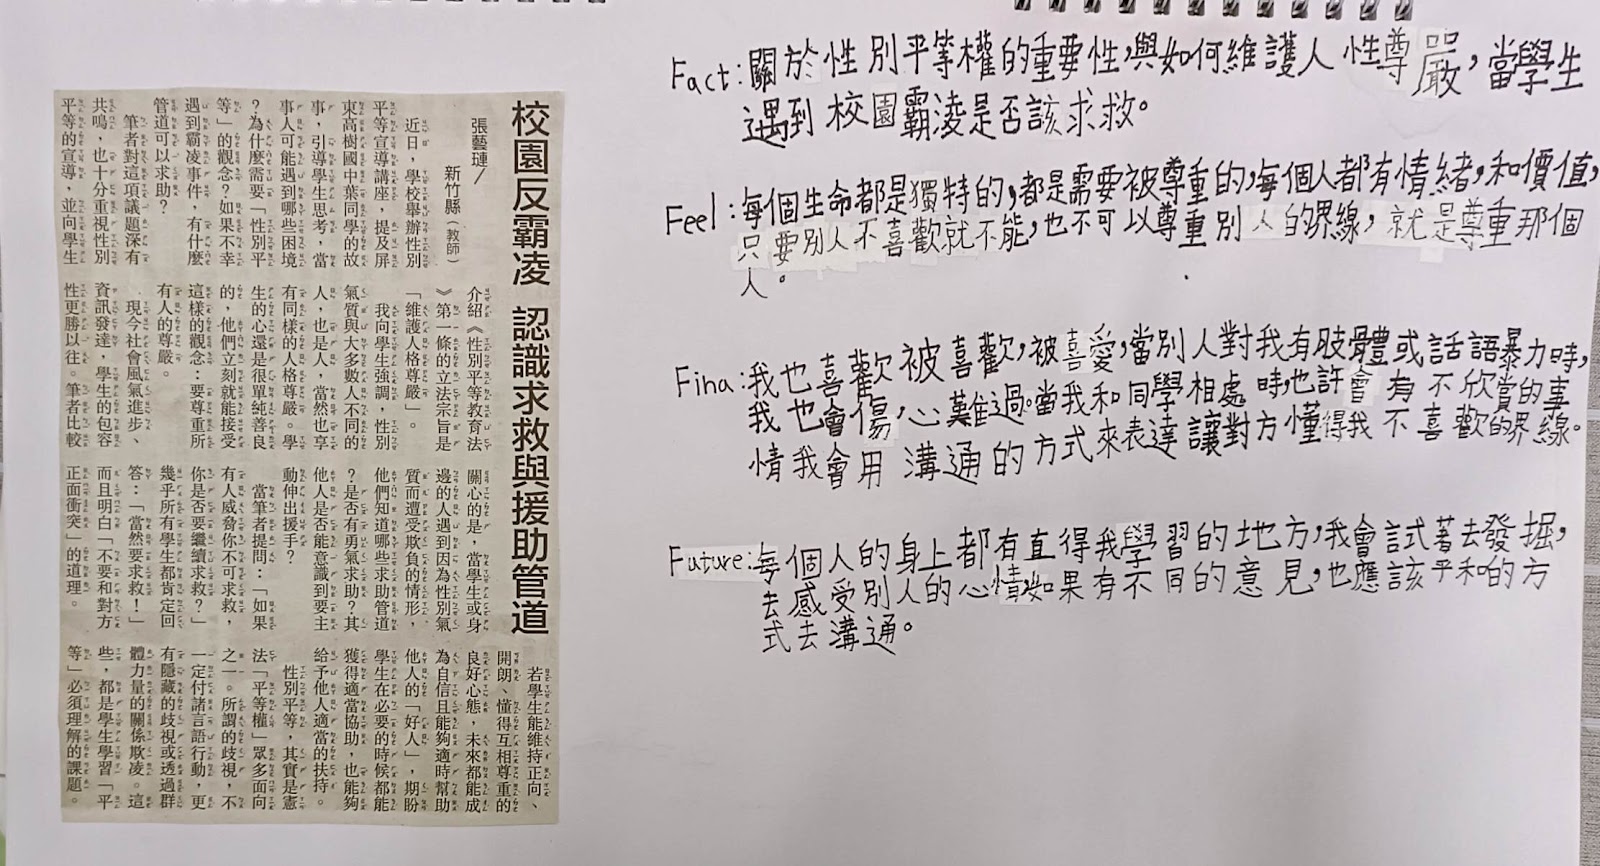 校園反霸凌 認識求救與援助管道
張藝璉／
新竹縣（教師）
近日，學校舉辦性別
平等宣導講座，提及屏
東高樹國中葉同學的故
事，引導學生思考，當
事人可能遇到哪些困境
？為什麼需要「性別平
等」的觀念？如果不幸
遇到霸凌事件，有什麼
管道可以求助？
筆者對這項議題深有
共鳴，也十分重視性別
平等的宣導，並向學生
介紹《性別平等教育法
》第一條的立法宗旨是
「維護人格尊嚴」。
我向學生強調，性別
氣質與大多數人不同的
人，也是人，當然也享
有同樣的人格尊嚴。學
生的心還是很單純善良
的，他們立刻就能接受
這樣的觀念：要尊重所
有人的尊嚴。
現今社會風氣進步、
資訊發達，學生的包容
性更勝以往。筆者比較
關心的是，當學生或身
邊的人遇到因為性別氣
質而遭受欺負的情形，
他們知道哪些求助管道
？是否有勇氣求助？其
他人是否能意識到要主
動伸出援手？
當筆者提問：「如果
有人威脅你不可求救，
你是否要繼續求救？」
幾乎所有學生都肯定回
答：「當然要求救！」
而且明白「不要和對方
正面衝突」的道理。
若學生能維持正向、
開朗、懂得互相尊重的
良好心態，未來都能成
為自信且能夠適時幫助
他人的「好人」，期盼
學生在必要的時候都能
獲得適當協助，也能夠
給予他人適當的扶持。
性別平等，其實是憲
法「平等權」眾多面向
之一。所謂的歧視，不
一定付諸言語行動，更
有隱藏的歧視或透過群
體力量的關係欺凌。這
些，都是學生學習「平
等」必須理解的課題。
Fact：關於性別平等權的重要性，與如何維護人性尊嚴，當學生
遇到校園霸凌是否該求救。
Feel：每個生命都是獨特的，都是需要被尊重的，每個人都有情緒，和價值，
只要別人不喜歡就不能，也不可以尊重別人的界線，就是尊重那個
人。
Fina：我也喜歡被喜歡，被喜愛，當別人對我有肢體或話語暴力時，
我也會傷，心難過。當我和同學相處時，也許會有不欣賞的事
情我會用溝通的方式來表達讓對方懂得我不喜歡的界線。
Future：每個人的身上都有直得我學習的地方，我會試著去發掘，
去感受別人的心情，如果有不同的意見，也應該平和的方
式去溝通。